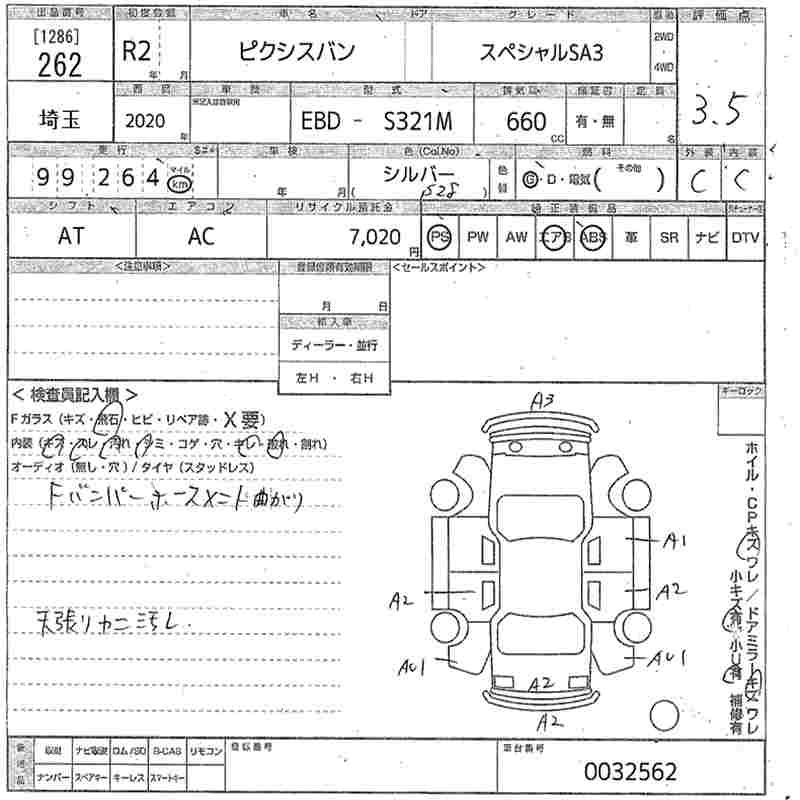 出品番号 初度登録 車名 ドア グレード 駆動 評価点
[1286] 262 R2 年 月 ピクシスバン スペシャルSA3 2WD 4WD 3.5
車歴 型式 排気量 定員
埼玉 2020 年 EBD - S321M 660 CC 有・無 名
走行 車検 色(Cal.No) 燃料 その他 外装 内装
99264 マイル km 年 月 シルバー ( S28 ) 色替 G・D・電気( ) C C
シフト エアコン リサイクル預託金 純正装備品
AT AC 7,020 円 PS PW AW エアB ABS 革 SR ナビ DTV
<注意事項> 登録書類有効期限 <セールスポイント>
月 日
輸入車
ディーラー・並行
左H ・ 右H
<検査員記入欄> キーロック
Fガラス(キズ・飛石・ヒビ・リペア跡・X要)
内装(キズ・スレ・汚れ・シミ・コゲ・穴・キレ・破れ・割れ)
オーディオ(無し・穴)/タイヤ(スタッドレス)
Fバンパーホースメント曲がり
天張りカニ汚レ
A3
A1
A2 A2
AU1 AU1
A2
A2
ホイル・CPキズワレ/ドアミラーキズワレ
小キズ有 小U有 補修有
後送品 取説 ナビ取説 ロム/SD B-CAS リモコン 登録番号 車台番号
ナンバー スペアキー キーレス スマートキー 0032562